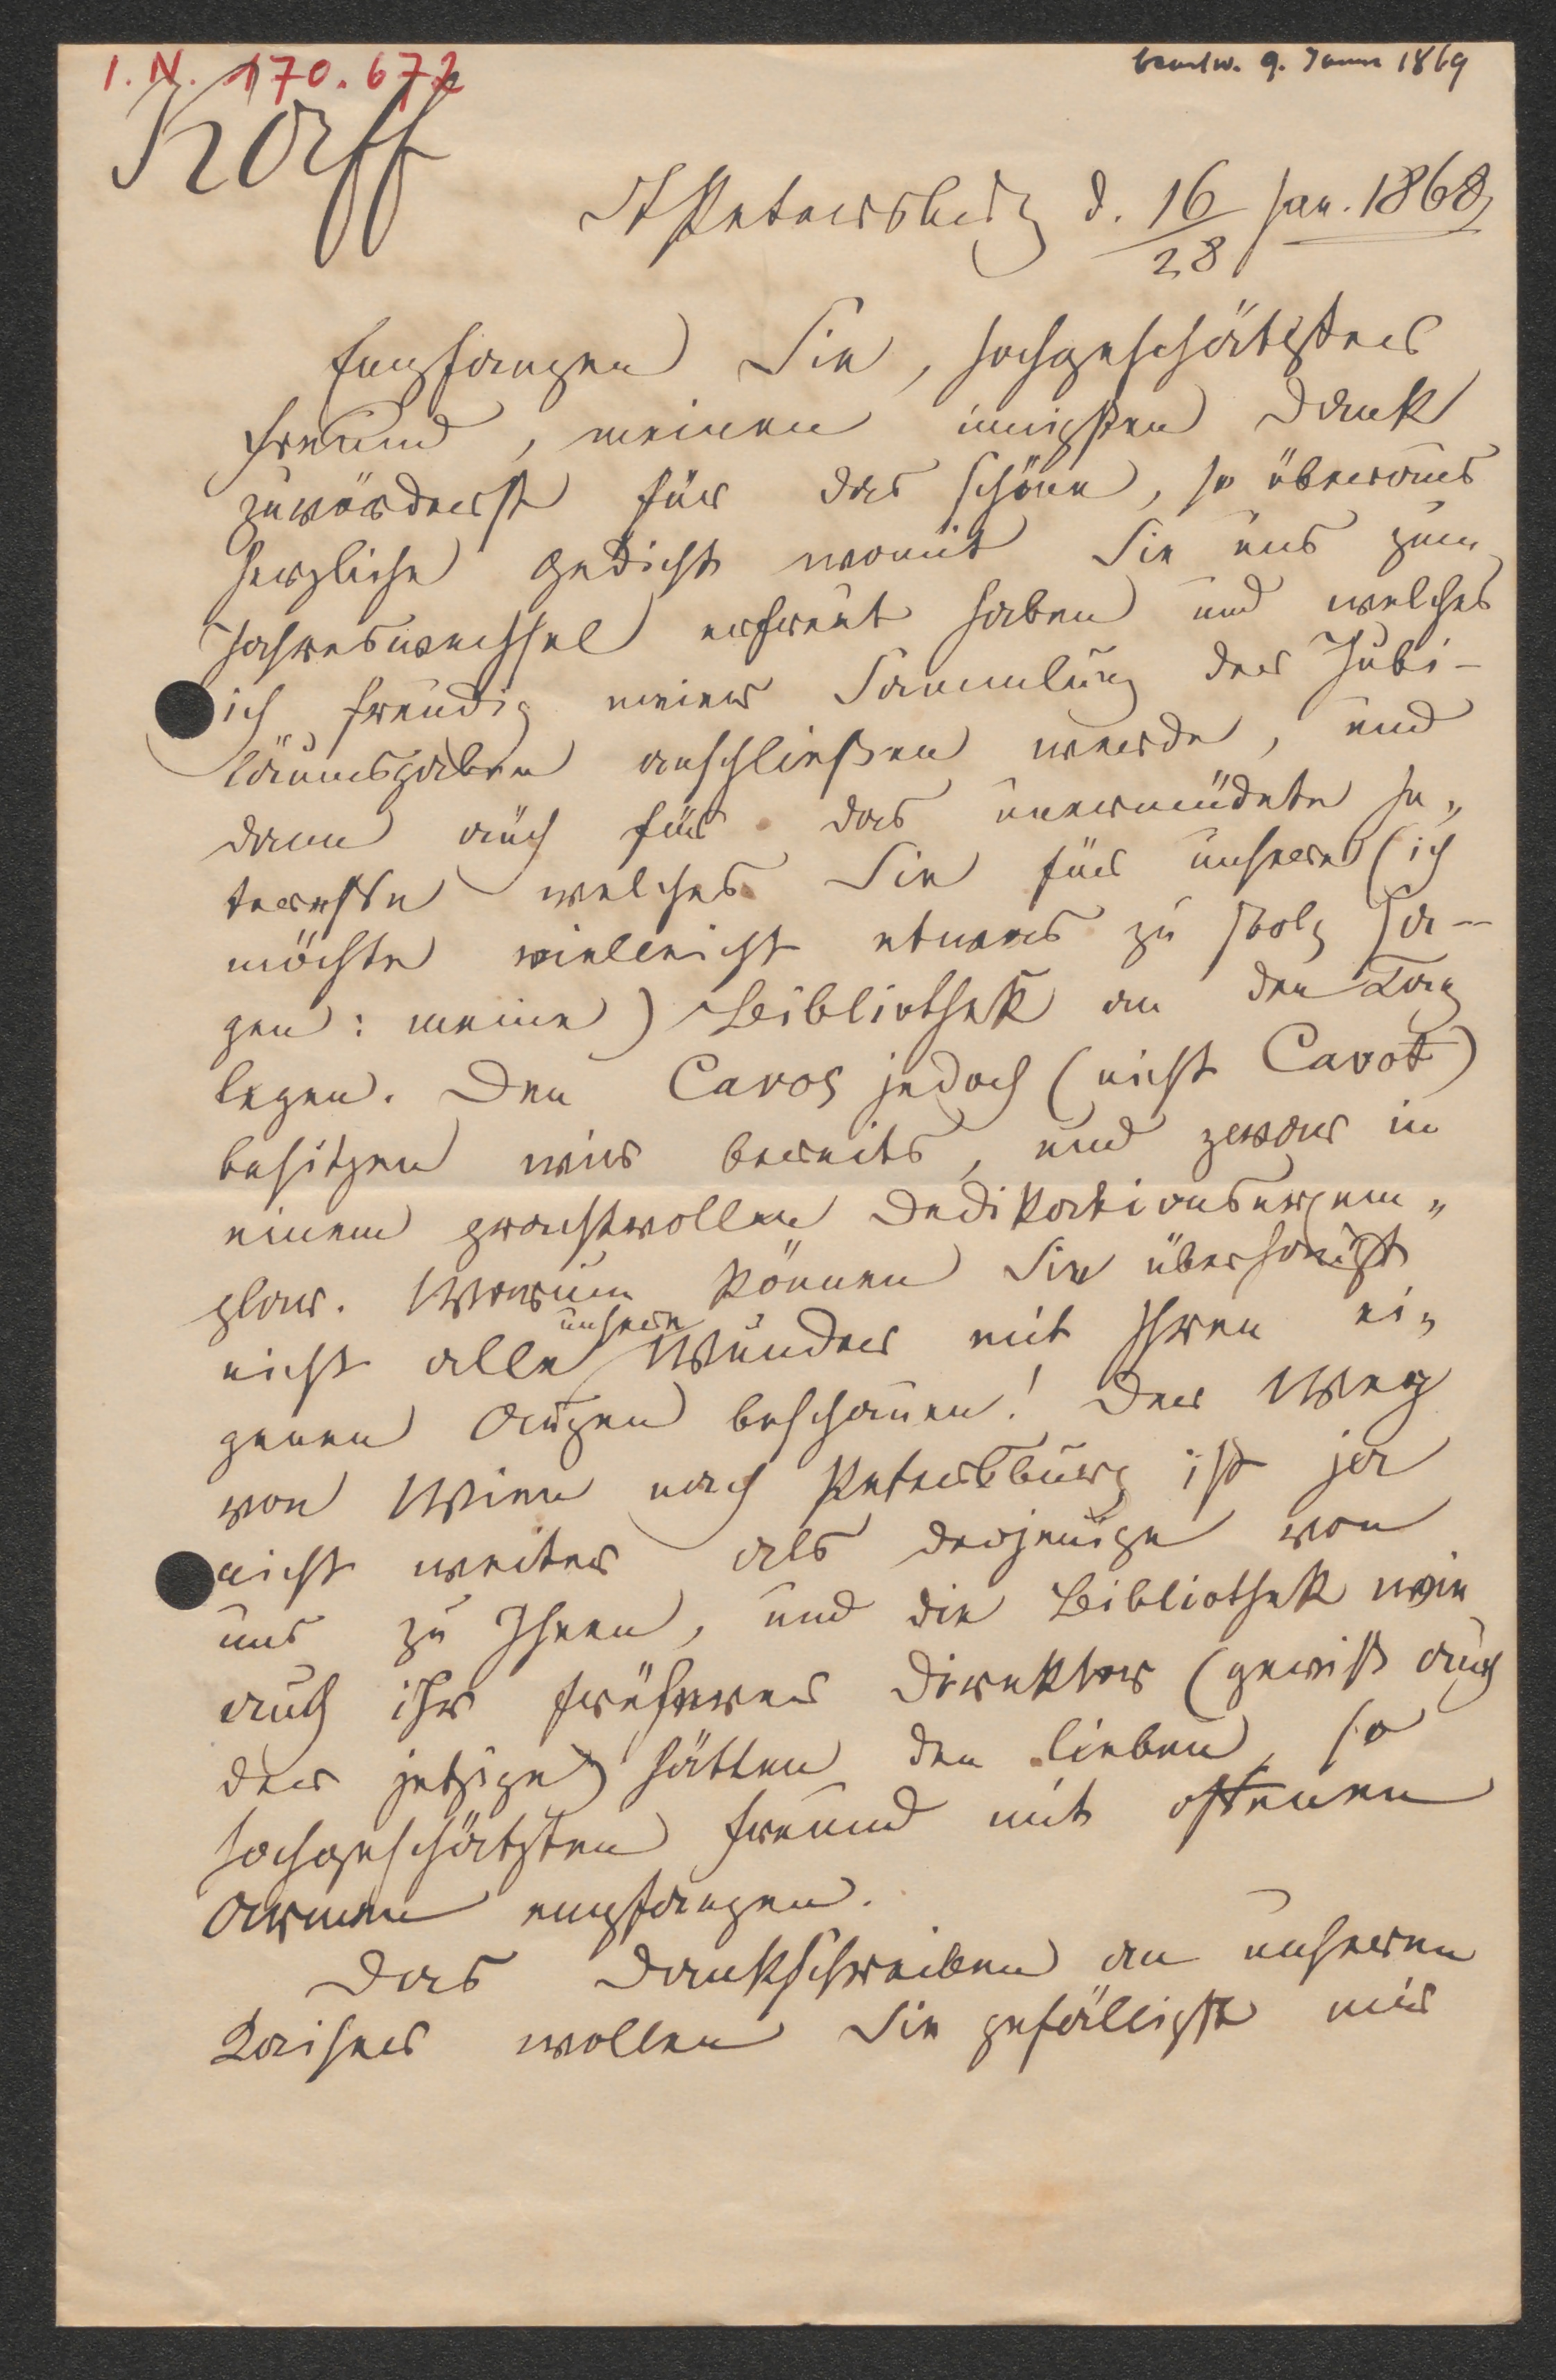 I. N. 170.672
beantw. 9. Jänn 1869
Korff
St Petersburg d. 16/28 Jan. 1868
Empfangen Sie, hochgeschätzter
Freund, meinen innigsten Dank
zuvörderst für das schöne, so überaus
herzliche Gedicht womit Sie uns zum
Jahreswechsel erfreut haben und welches
ich freudig meiner Sammlung der Jubi-
läumsgaben anschließen werde, und
dann auch für das unermüdete In„
teresse welches Sie für unsere (ich
möchte vielleicht etwas zu stolz sa-
gen: meine) Bibliothek an den Tag
legen. Den Cavos jedoch (nicht Cavot)
besitzen wir bereits, und zwar in
einem prachtvollen Dedikationsexem„
plar. Warum können Sie überhaupt
nicht alle unsere Wunder mit Ihren ei„
genen Augen beschauen! Der Weg
von Wien nach Petersburg ist ja
nicht weiter als derjenige von
uns zu Ihnen, und die Bibliothek wie
auch ihr früherer Direktor (gewiß auch
der jetzige) hätten den lieben, so
hochgeschätzten Freund mit offenen
Armen empfangen.
Das Dankschreiben an unseren
Kaiser wollen Sie gefälligst mir